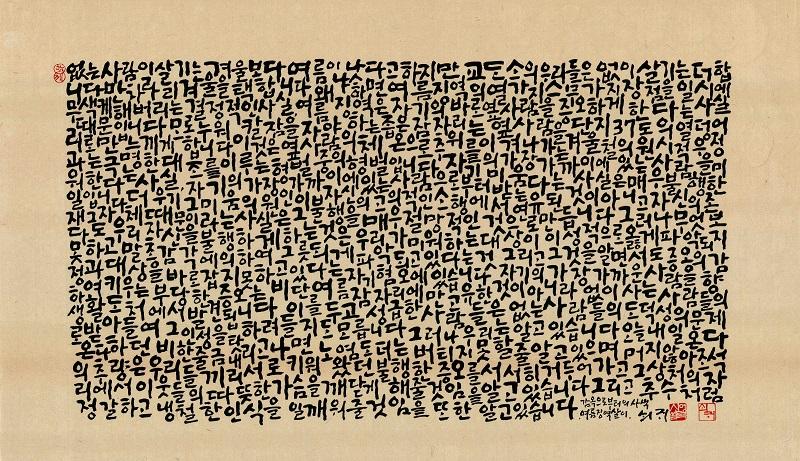 없는 사람이 살기는 겨울보다 여름이 낫다고 하지만 교도소의 우리들은 없이 살기는 더합
니다만 차라리 겨울을 택합니다 왜냐하면 여름징역의 열가지 스무가지 장점을 일시에
무색케 해버리는 결정적인 사실 여름징역은 자기의 바로 옆사람을 증오하게 한다는 사실
때문입니다 모로 누워 칼잠을 자야하는 좁은 잠자리는 옆사람을 단지 37도의 열덩어
리로만 느끼게 합니다 이것은 옆사람의 체온으로 추위를 이겨나가는 겨울철의 원시적 우정
과는 극명한 대조를 이루는 형벌중의 형벌입니다 자기의 가장 가까이에 있는 사람을 미
워한다는 사실 자기의 가장 가까이에 있는 사람으로부터 미움받는다는 사실은 매우 불행한
일입니다 더욱이 그 미움의 원인이 자신의 고의적인 소행에서 연유된 것이 아니고 자신의 존
재 그 자체 때문이라는 사실은 그 불행을 매우 절망적인 것으로 만듭니다 그러나 무엇보
다도 우리 자신을 불행하게 하는 것은 우리가 미워하는 대상이 이성적으로 옳게 파악되지
못하고 말초감각에 의하여 그릇되게 파악되고 있다는 것 그리고 그것을 알면서도 증오의 감
정과 대상을 바로잡지 못하고 있다는 자기혐오에 있습니다 자기의 가장 가까운 사람을 향
하여 키우는 부당한 증오는 비단 여름 잠자리에만 고유한 것이 아니라 없는 사람들의
생활 도처에서 발견됩니다 이를 두고 성급한 사람들은 없는 사람들의 도덕성의 문제
로 받아들여 그 인성을 탓하려 들지도 모릅니다 그러나 우리들은 알고 있습니다 오늘 내일
온다 온다 하던 비 한줄금 내리고 나면 노염도 더는 버티지 못할 줄 알고 있으며 머지않아 조석
의 추량은 우리들끼리 서로 키워왔던 불행한 증오를 서서히 거두어가고 그 상처의 자
리에서 이웃들의 따뜻한 가슴을 깨닫게 해줄 것임을 알고 있습니다 그리고 추수처럼
정갈하고 냉철한 인식을 일깨워 줄 것임을 또한 알고 있습니다
감옥으로부터의 사색
여름징역살이 쇠귀